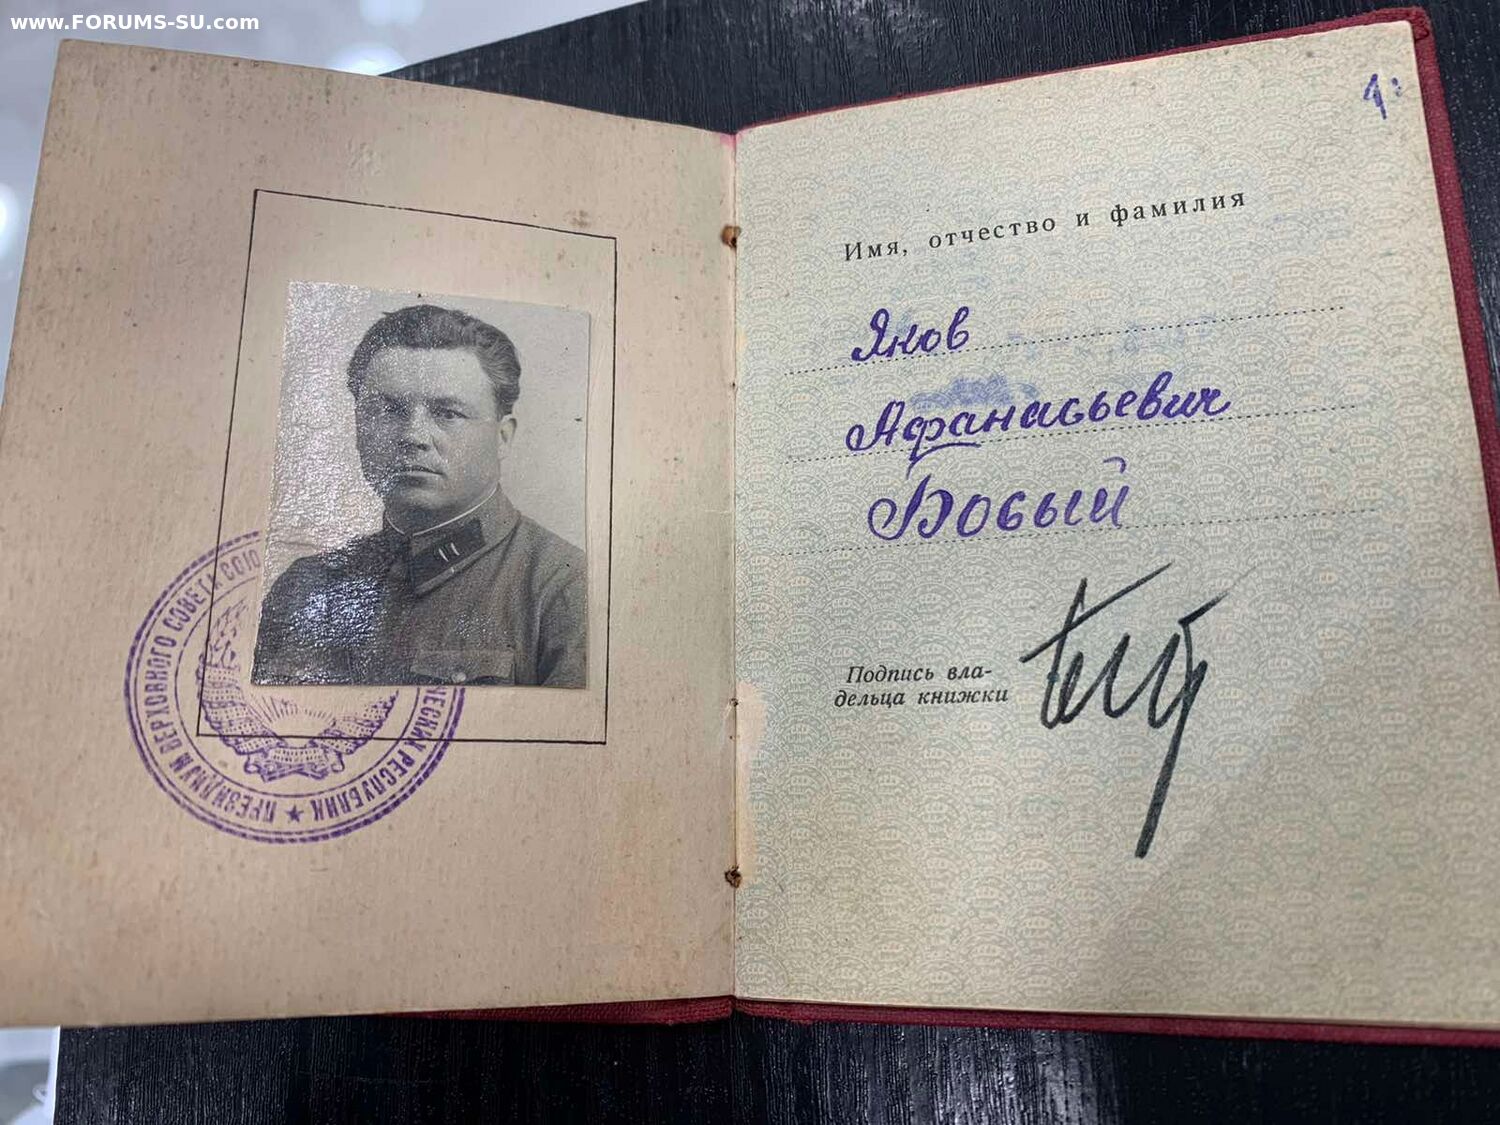 www.FORUMS-SU.com
ПРЕЗИДИУМ ВЕРХОВНОГО СОВЕТА СОЮ
ЧЕСКИХ РЕСПУБЛИК ★
Имя, отчество и фамилия
Янов
Афанасьевич
Бобый
Подпись вла-
дельца книжки